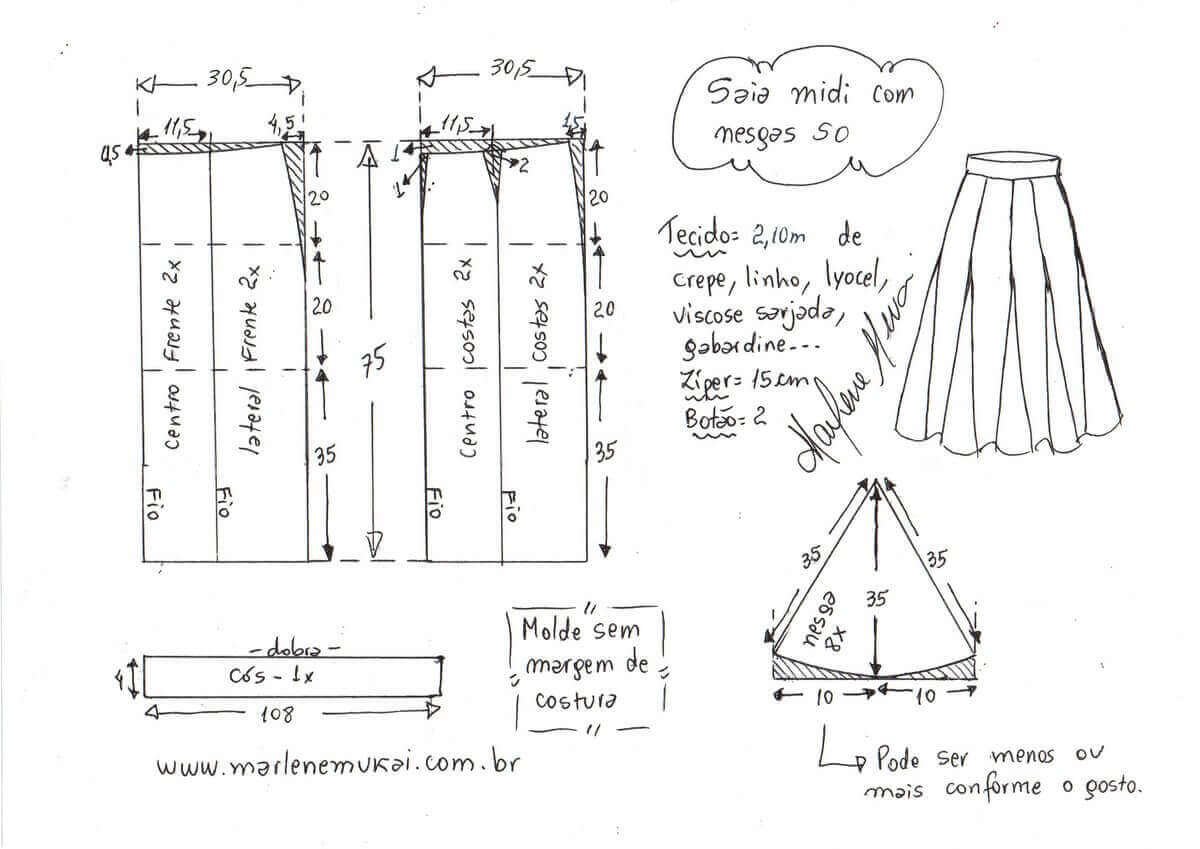 30,5
11,5
4,5
0,5
20
20
35
Centro Frente 2x
lateral Frente 2x
Fio
Fio
75
30,5
11,5
1,5
1
1
2
20
20
35
Centro costas 2x
lateral Costas 2x
Fio
Fio
Saia midi com
nesgas 50
Tecido= 2,10m de
crepe, linho, lyocel,
viscose sarjada,
gabardine---
Zíper= 15cm
Botão= 2
35
35
35
nesga
8x
10
10
Pode ser menos ou
mais conforme o gosto.
-dobra-
Cós - 1x
4
108
Molde sem
margem de
costura
www.marlenemukai.com.br